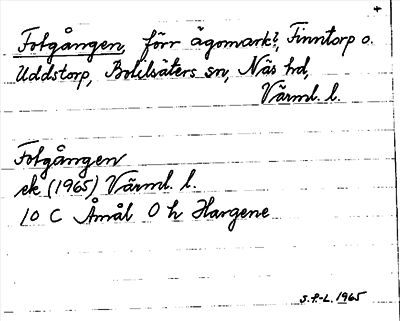 Fotgången, förr ägomark?, Finntorp o.
Uddstorp, Bolilsäters sn, Näs hd,
Värml. l.
Fotgången
ek (1965) Värml. l.
10 C Åmål 0 h Hargene
S.P-L. 1965